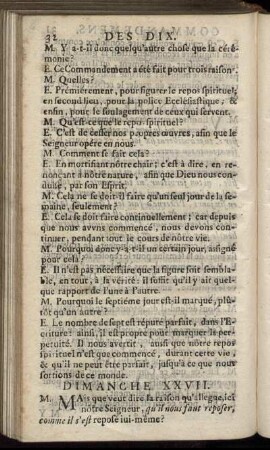 32 DES DIX.
M. Y a-t-il donc quelqu'autre chose que la céré-
monie?
E. Ce Commandement a été fait pour trois raison.
M. Quelles?
E. Prémiérement, pour figurer le repos spirituel;
en second lieu, pour la police Ecclésiastique; &
enfin, pour le soulagement de ceux qui servent.
M. Qu'est-ce que le repos spirituel?
E. C'est de cesser nos propres œuvres, afin que le
Seigneur opére en nous.
M. Comment se fait cela?
E. En mortifiant nôtre chair; c'est à dire, en re-
nonçant à nôtre nature, afin que Dieu nous con-
duise, par son Esprit.
M. Cela ne se doit-il faire qu'un seul jour de la se-
maine, seulement?
E. Cela se doit faire continuellement; car depuis
que nous avons commencé, nous devons conti-
nuer, pendant tout le cours de nôtre vie.
M. Pourquoi donc y-a-t-il un certain jour, assigné
pour cela?
E. Il n'est pas nécessaire que la figure soit sembla-
ble, en tout, à la vérité: il suffit qu'il y ait quel-
que rapport de l'une à l'autre.
M. Pourquoi le septiéme jour est-il marqué, plû-
tôt qu'un autre?
E. Le nombre de sept est réputé parfait, dans l'E-
criture: ainsi, il est propre pour marquer la per-
petuité. Il nous avertit, aussi que nôtre repos
spirituel n'est que commencé, durant cette vie,
& qu'il ne peut être parfait, jusqu'à ce que nous
sortions de ce monde.
DIMANCHE XXVII.
M. MAis que veut dire la raison qu'allegue, ici
nôtre Seigneur, qu'il nous faut reposer,
comme il s'est reposé lui-même?